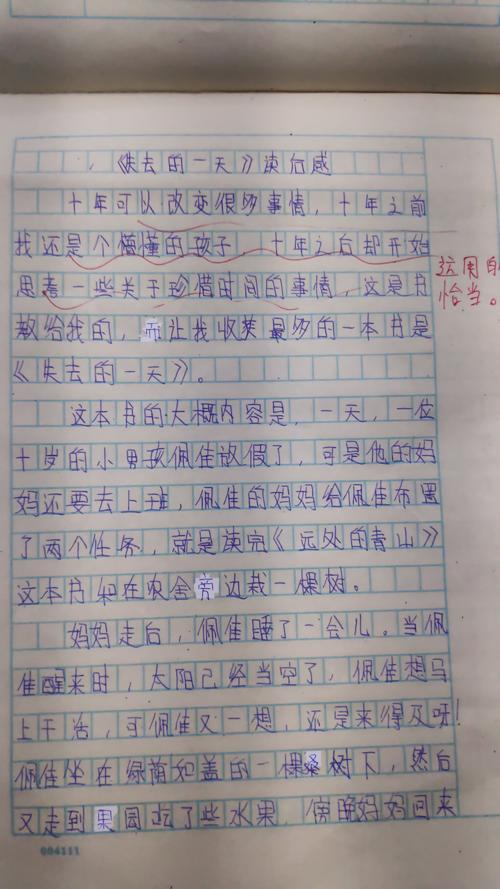 《失去的一天》读后感
十年可以改变很多事情，十年之前
我还是个懵懂的孩子，十年之后却开始
思考一些关于珍惜时间的事情，这是书
教给我的，而让我收获最多的一本书是
《失去的一天》。
这本书的大概内容是，一天，一位
十岁的小男孩佩佳放假了，可是他的妈
妈还要去上班，佩佳的妈妈给佩佳布置
了两个任务，就是读完《远处的青山》
这本书和在农舍旁边栽一棵树。
妈妈走后，佩佳睡了一会儿。当佩
佳醒来时，太阳已经当空了，佩佳想马
上干活，可佩佳又一想，还是来得及呀！
佩佳坐在绿荫如盖的一棵桑树下，然后
又走到果园吃了些水果，傍晚妈妈回来
运用的
恰当。
004111